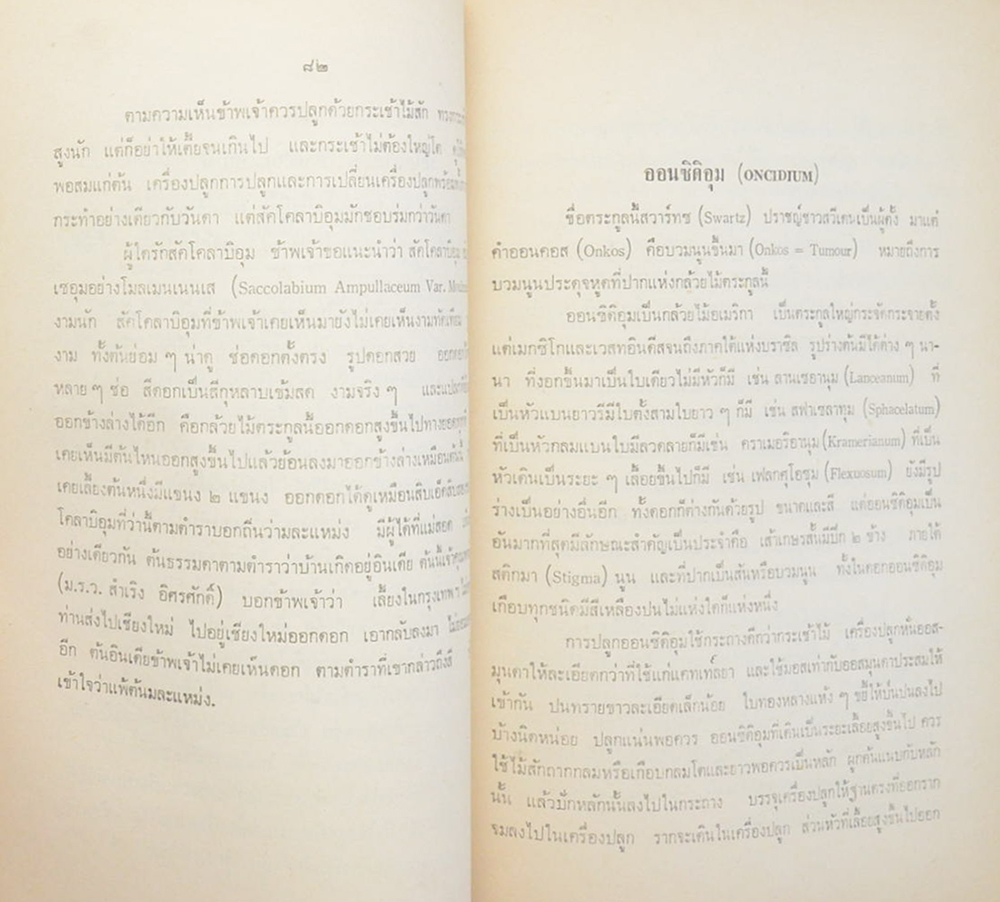 ๘๒
ตามความเห็นข้าพเจ้าควรปลูกด้วยกระเช้าไม้สัก
สูงนัก แต่ก็อย่าให้เตี้ยจนเกินไป และกระเช้าไม่ต้องใหญ่โต
พอสมแก่ต้น เครื่องปลูกการปลูกและการเปลี่ยนเครื่องปลูก
กระทำอย่างเดียวกับวันดา แต่สัคโคลาบิอุมมักชอบร่มกว่าวันดา
ผู้ใดรักสัคโคลาบิอุม ข้าพเจ้าขอแนะนำว่า สัคโคลาบิอุม
เซอุมอย่างโมลเมนเนนเส (Saccolabium Ampullaceum Var.
งามนัก สัคโคลาบิอุมที่ข้าพเจ้าเคยเห็นมายังไม่เคยเห็นงามทัดเทียม
งาม ทั้งต้นย่อม ๆ น่าดู ช่อดอกตั้งตรง รูปดอกสวย
หลาย ๆ ช่อ สีดอกเป็นสีกุหลาบเข้มสด งามจริง ๆ
ออกข้างล่างได้อีก คือกล้วยไม้ตระกูลนี้ออกดอกสูงขึ้นไปทางยอด
เคยเห็นมีต้นไหนออกสูงขึ้นไปแล้วย้อนลงมาออกข้างล่างเหมือนต้นนี้
เคยเลี้ยงต้นหนึ่งมีแขนง ๒ แขนง ออกดอกได้ดูเหมือนสิบเอ็ด
โคลาบิอุมที่ว่านี้ตามตำราบอกถิ่นว่ามะละแหม่ง มีผู้ได้ที่แม่สอด
อย่างเดียวกัน ต้นธรรมดาตามตำราว่าบ้านเกิดอยู่อินเดีย ต้นนี้
(ม.ร.ว. สำเริง อิศรศักดิ์) บอกข้าพเจ้าว่า เลี้ยงในกรุงเทพ ฯ
ท่านส่งไปเชียงใหม่ ไปอยู่เชียงใหม่ออกดอก เอากลับลงมา
อีก ต้นอินเดียข้าพเจ้าไม่เคยเห็นดอก ตามตำราที่เขากล่าวถึงสี
เข้าใจว่าแพ้ต้นมะละแหม่ง.
ออนซิดิอุม (ONCIDIUM)
ชื่อตระกูลนี้สวาร์ทซ (Swartz) ปราชญ์ชาวสวีเดนเป็นผู้ตั้ง มาแต่
คำออนคอส (Onkos) คือบวมนูนขึ้นมา (Onkos = Tumour) หมายถึงการ
บวมนูนประดุจหูดที่ปากแห่งกล้วยไม้ตระกูลนี้
ออนซิดิอุมเป็นกล้วยไม้อเมริกา เป็นตระกูลใหญ่กระจัดกระจายตั้ง
แต่เมกซิโกและเวสทอินดีสจนถึงภาคใต้แห่งบราซิล รูปร่างต้นมีได้ต่าง ๆ นา-
นา ที่งอกขึ้นมาเป็นใบเดียวไม่มีหัวก็มี เช่น ลานเซอานุม (Lanceanum) ที่
เป็นหัวแบนยาวรีมีใบตั้งสามใบยาว ๆ ก็มี เช่น สฟาเซลาทุม (Sphacelatum)
ที่เป็นหัวกลมแบนใบมีลวดลายก็มีเช่น คราเมอริอานุม (Kramerianum) ที่เป็น
หัวเดินเป็นระยะ ๆ เลื้อยขึ้นไปก็มี เช่น เฟลกศุโอซุม (Flexuosum) ยังมีรูป
ร่างเป็นอย่างอื่นอีก ทั้งดอกก็ต่างกันด้วยรูป ขนาดและสี แต่ออนซิดิอุมเป็น
อันมากที่สุดมีลักษณะสำคัญเป็นประจำคือ เส้าเกษรสั้นมีปีก ๒ ข้าง ภายใต้
สติกมา (Stigma) นูน และที่ปากเป็นสันหรือบวมนูน ทั้งในดอกออนซิดิอุม
เกือบทุกชนิดมีสีเหลืองปนไม่แห่งใดก็แห่งหนึ่ง
การปลูกออนซิดิอุมใช้กระถางดีกว่ากระเช้าไม้ เครื่องปลูกหั่นออส-
มุนดาให้ละเอียดกว่าที่ใช้แก่แคทเทลยา และใช้มอสเท่ากับออสมุนดาประสมให้
เข้ากัน ปนทรายขาวละเอียดเล็กน้อย ใบทองหลางแห้ง ๆ ขยี้ให้ป่นปนลงไป
บ้างนิดหน่อย ปลูกแน่นพอควร ออนซิดิอุมที่เดินเป็นระยะเลื้อยสูงขึ้นไป ควร
ใช้ไม้สักถากกลมหรือเกือบกลมโตและยาวพอควรเป็นหลัก ผูกต้นแนบกับหลัก
นั้น แล้วปักหลักนั้นลงไปในกระถาง บรรจุเครื่องปลูกให้ฐานตรงที่ออกราก
จมลงไปในเครื่องปลูก รากจะเดินในเครื่องปลูก ส่วนหัวที่เลื้อยสูงขึ้นไปออก